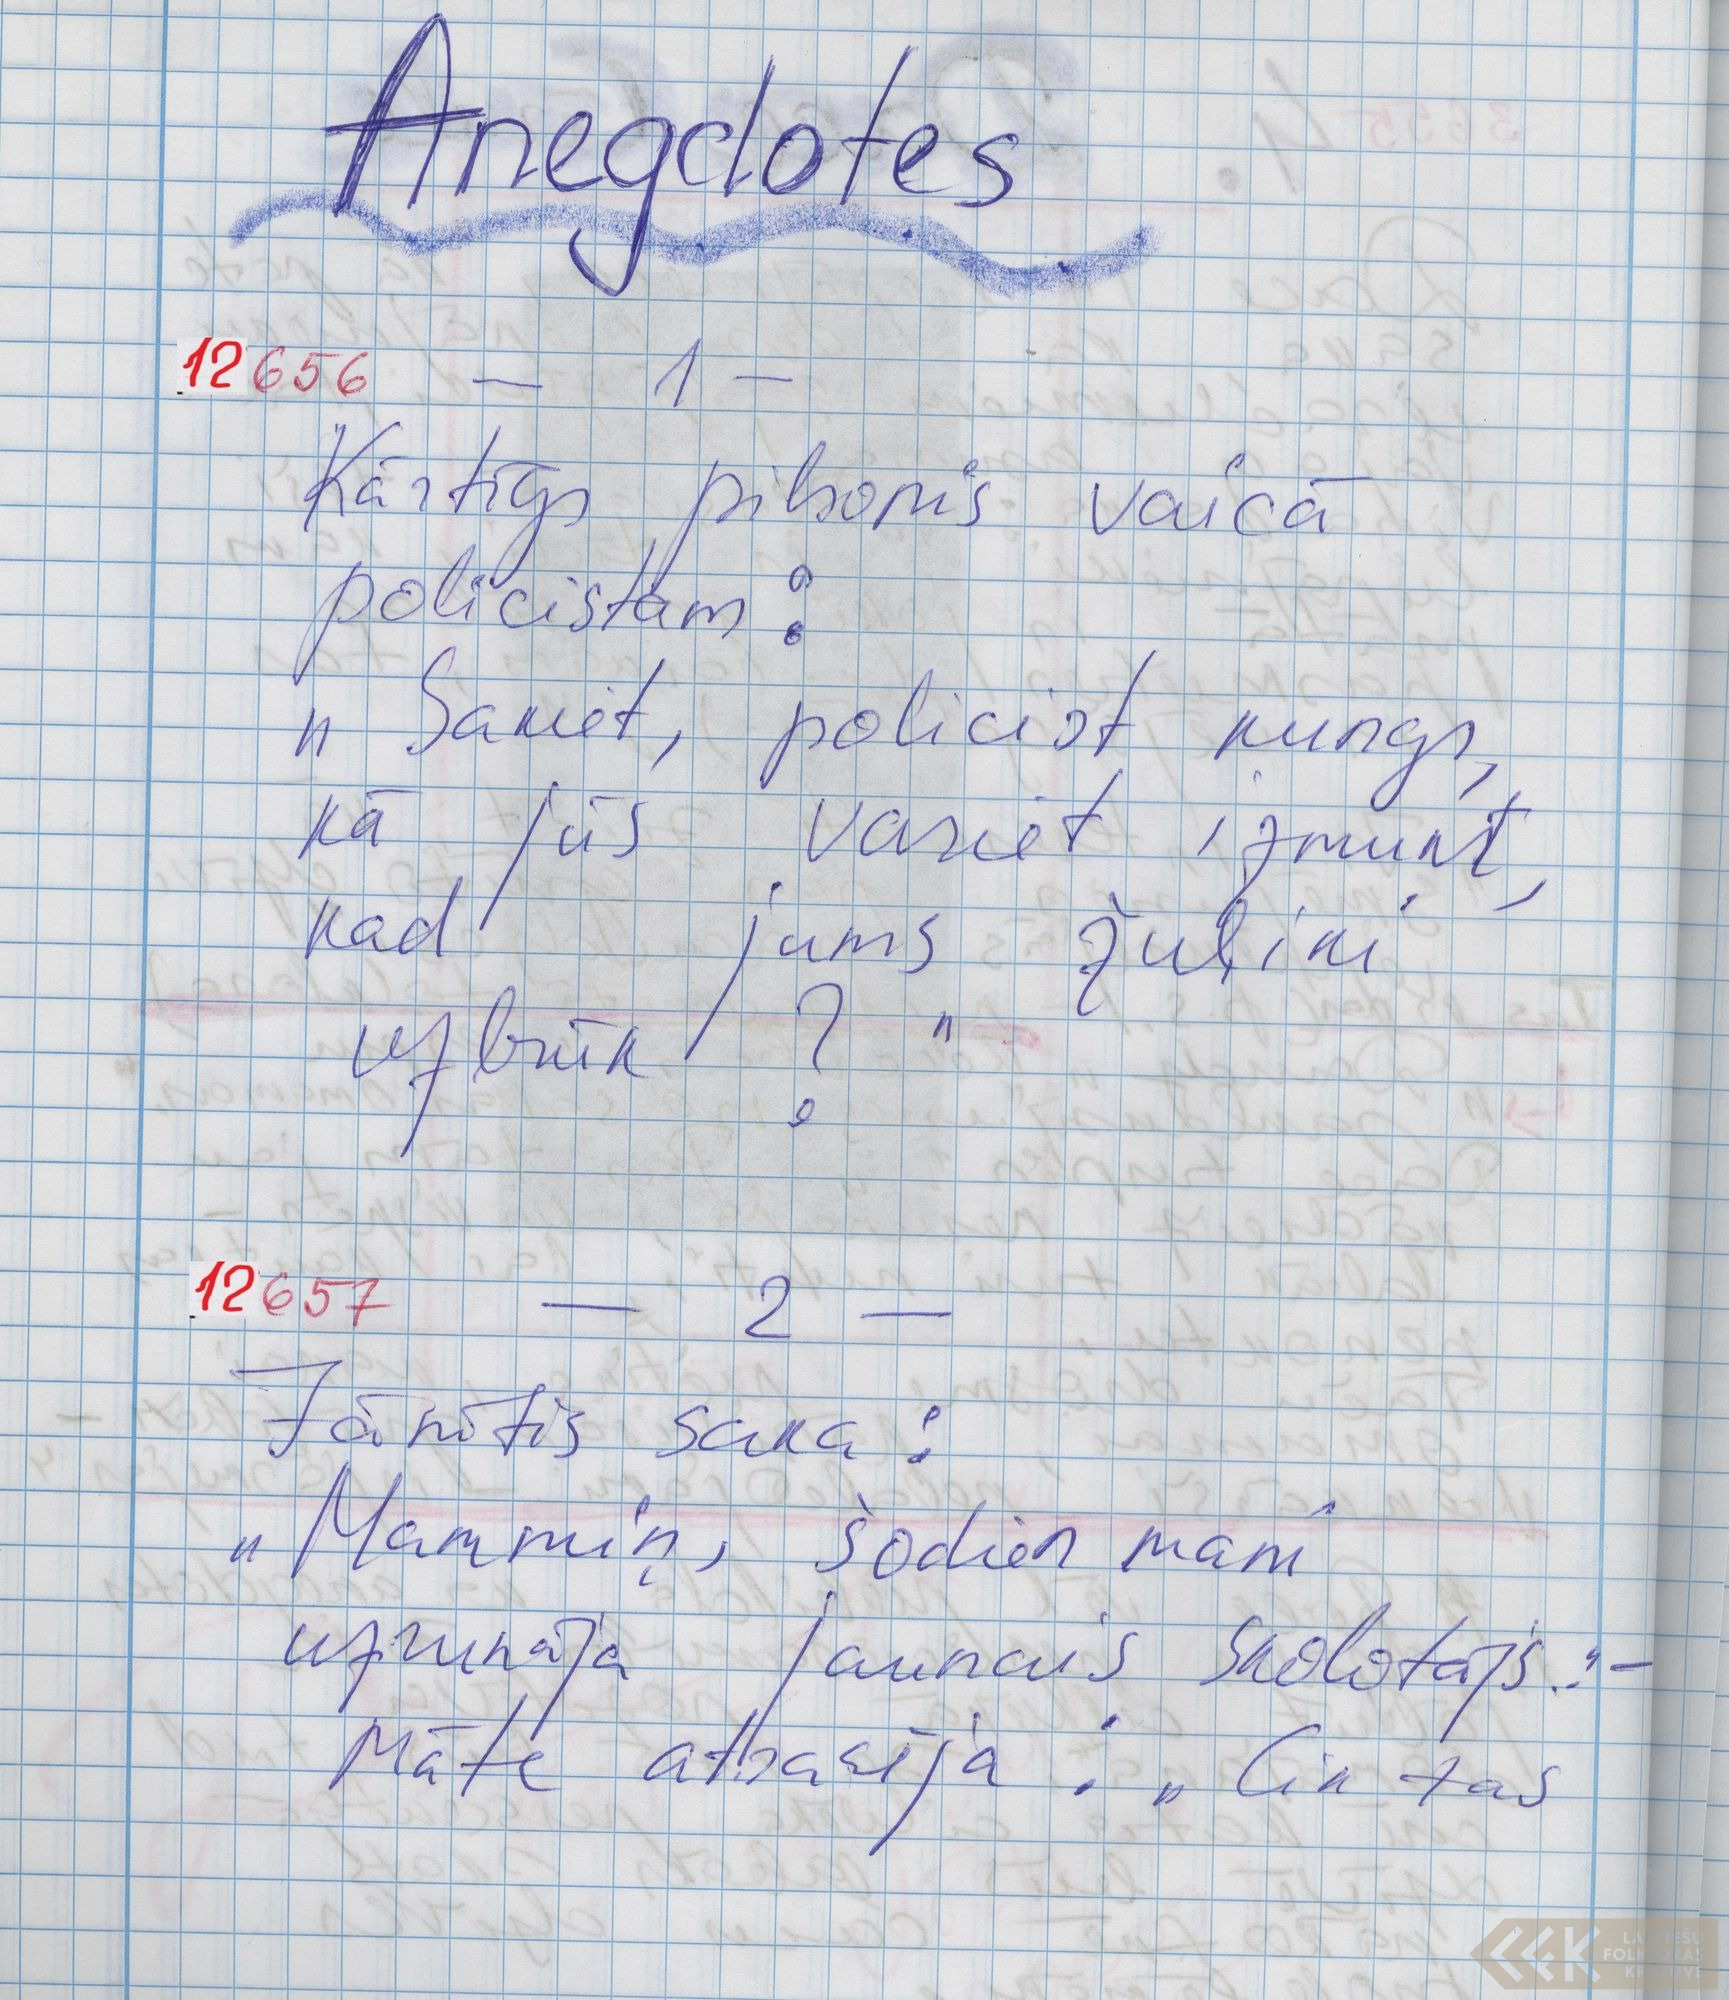 Anegdotes
12656 — 1 —
Kārtīgs pilsonis vaicā
policistam:
"Sakiet, policist kungs,
kā jūs variet izmukt,
kad jums žuļiki
uzbrūk?"
12657 — 2 —
Jānītis saka:
"Mammiņ, šodien mani
uzrunāja jaunais skolotājs." –
Māte atbasēja: "Cik tas
LATVIEŠU
FOLKLORAS
KRĀTUVE